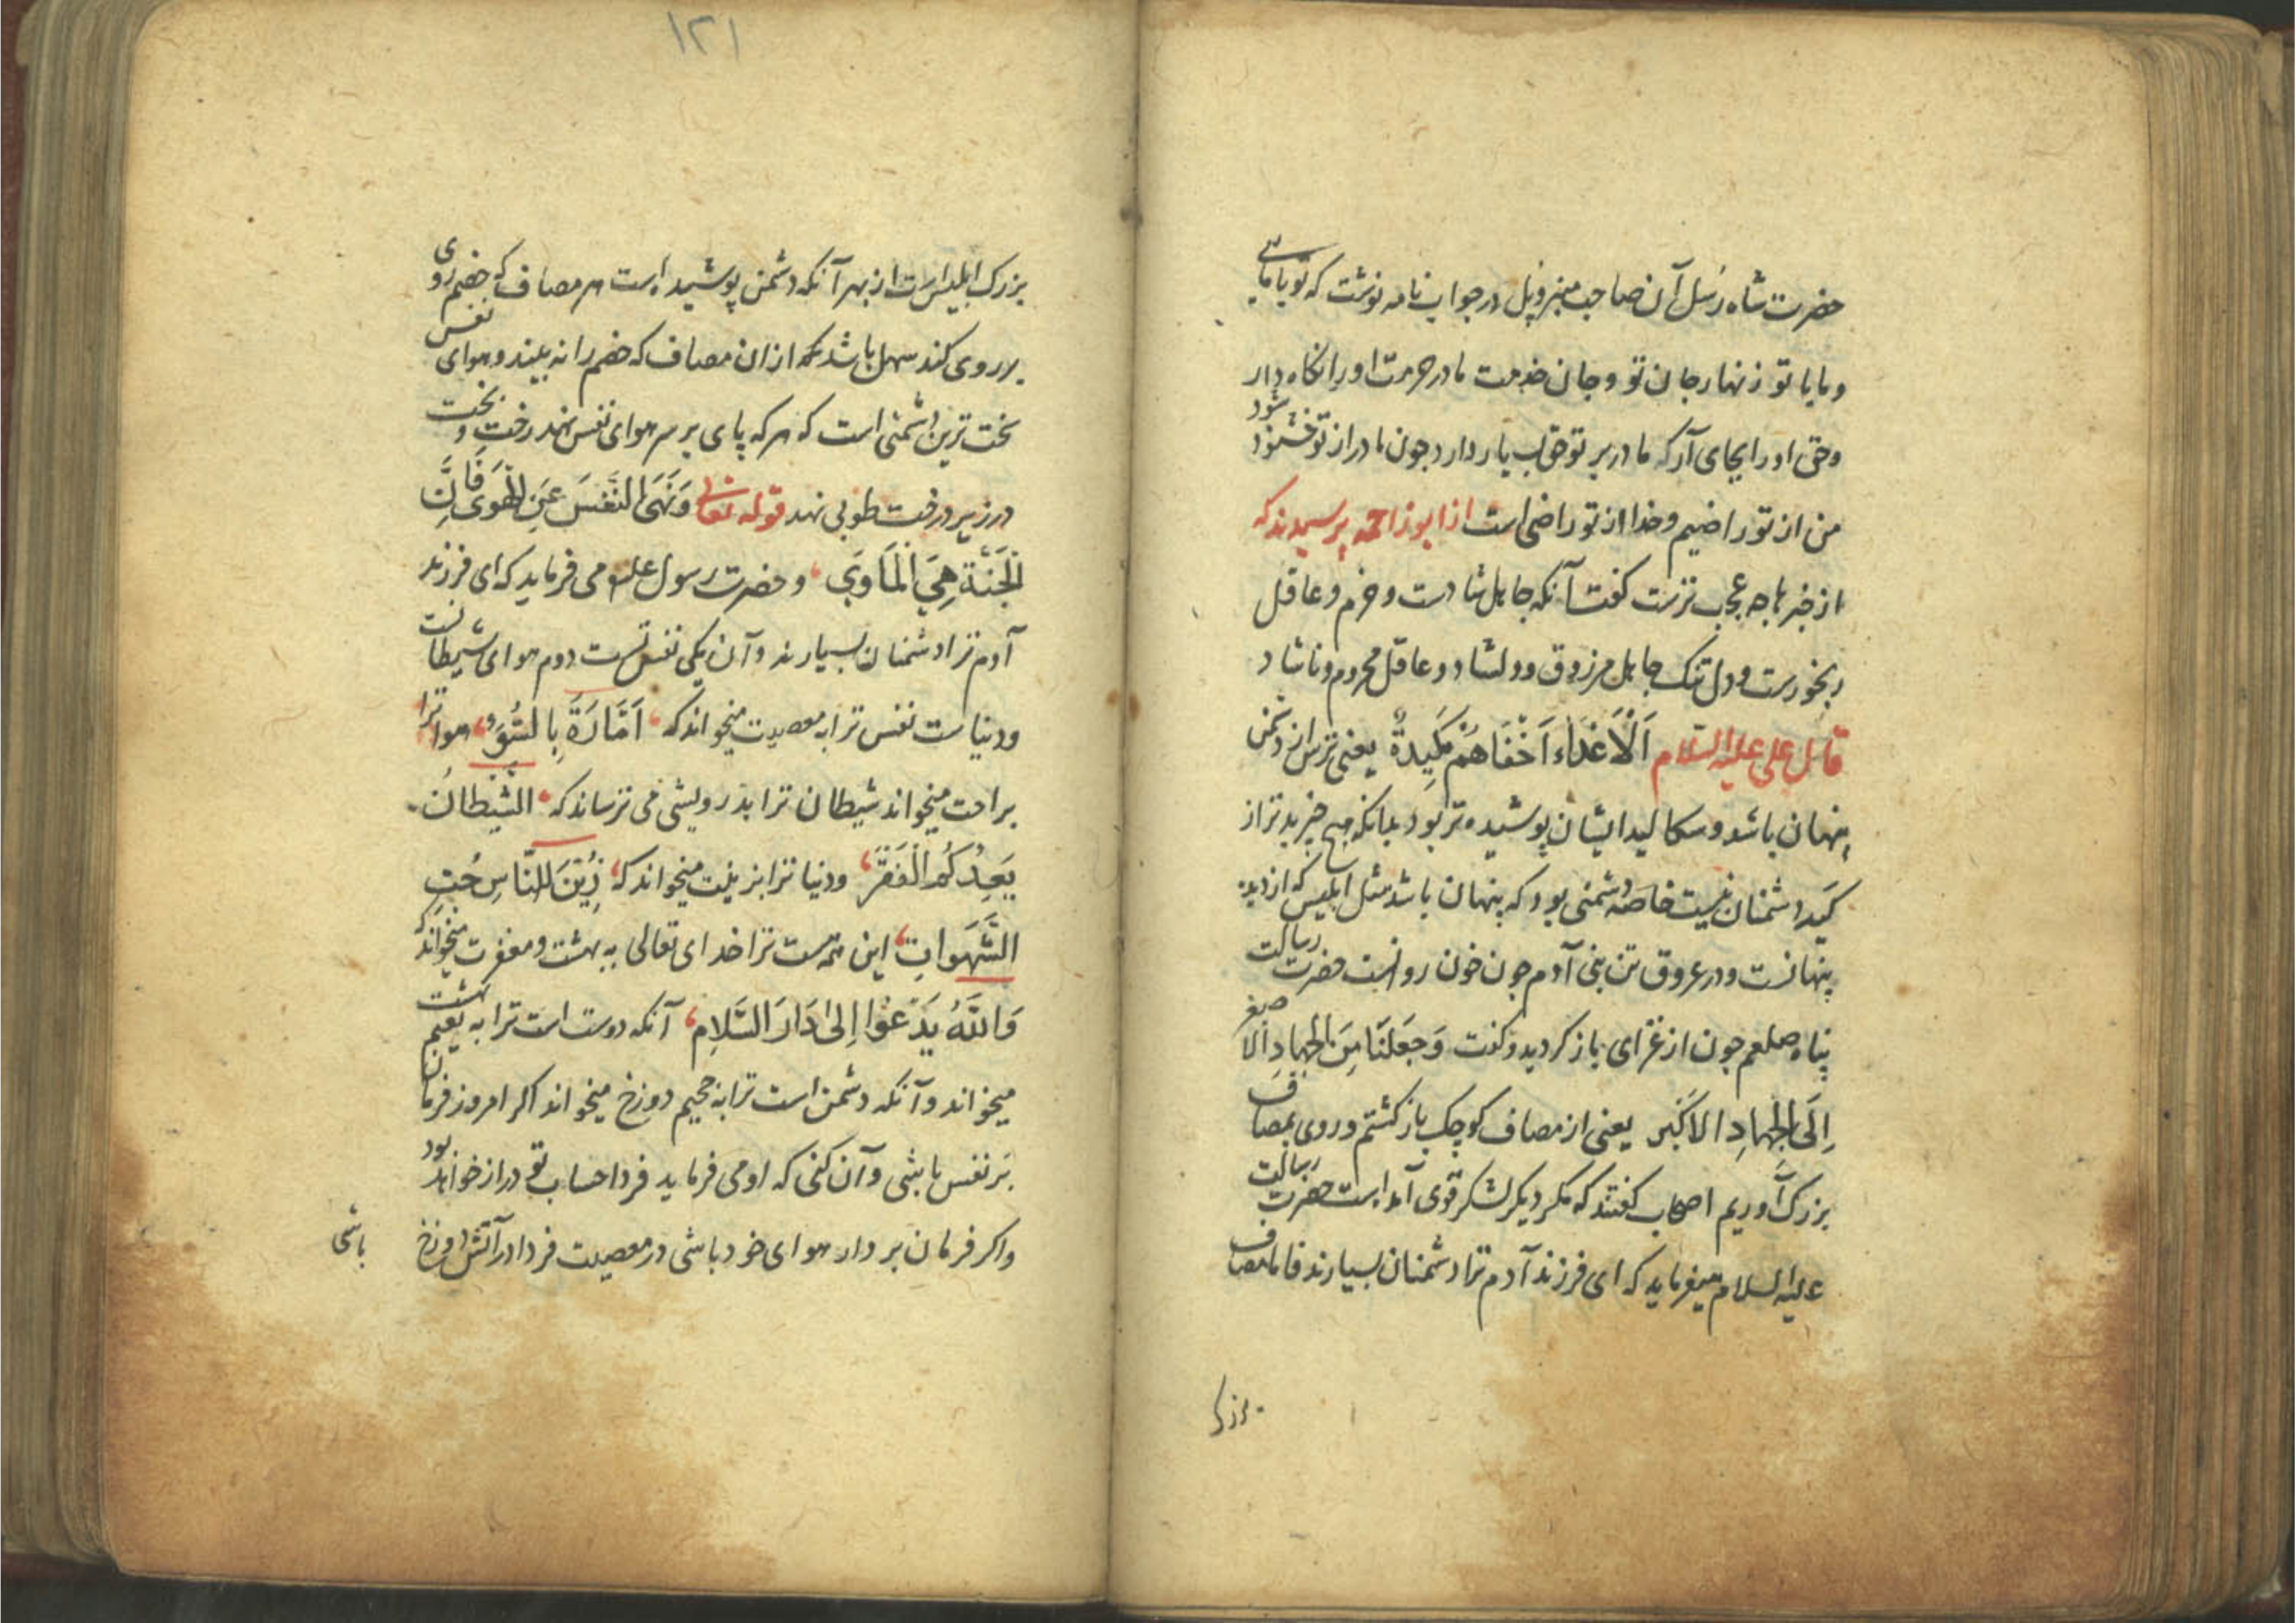 حضرت شاه رسل آن صاحب منبر و پل در جواب نامه نوشت که تو با مایی
و ما با تو زنهار جان تو و جان خدمت مادر حرمت او را نکاه دار
وحق او را بجای آر که مادر بر تو حق بسیار دارد جون مادر از تو خشنود شود
من از تو راضیم و خدا از تو راضی است از ابوذر احمه پرسیدند که
از خبرها جه عجب ترست کفت آنکه جاهل شادست و خرم و عاقل
رنجورست و دل تنک جاهل مرزوق و دلشاد و عاقل محروم و ناشاد
قال علی علیه السلام اَلْاَعْدَاء اَخْفَاهُمْ مَکِیدَةٌ یعنی ترس از دشمن
پنهان باشد و سکالید ایشان پوشیده تر بود بدانکه هیچ چیز بد تر از
کید دشمنان نیست خاصه دشمنی بود که پنهان باشد مثل ابلیس که از دیده
پنهانست و در عروق تن بنی آدم جون خون روانست حضرت رسالت
پناه صلعم جون از غزای باز کردید و کفت وَجَعَلنَا مِنَ الجِهادِ الاصغر
اِلَی الجِهادِ الاکبَر یعنی از مصاف کوچک باز کشتم و روی بمصاف
بزرک آوریم اصحاب کفتند که مکر دیکر لشکر قوی آمده است حضرت رسالت
علیه السلام میفرماید که ای فرزند آدم ترا دشمنان بسیارند فاما مصاف
بزرک
۱۲۱
بزرک ابلیس است از بهر آنکه دشمن پوشیده است هر مصاف که خصم روی
بر روی کند سهل باشد نکه از ان مصاف که خصم را نه بیند و هوای نفس
سخت ترین دشمنی است که هر که پای بر سر هوای نفس نهد رخت و بخت
در زیر درخت طوبی نهد قوله تعالی وَنَهَی النَّفسَ عَنِ الهَوَی فَاِنَّ
الجَنَّةَ هِیَ المَاوَی و حضرت رسول علیه السلام می فرماید که ای فرزند
آدم ترا دشمنان بسیارند و آن یکی نفس تست دوم هوای شیطانست
و دنیاست نفس ترا به معصیت میخواند که اَمَّارَةٌ بِالسُّوءِ هوا ترا
براحت میخواند شیطان ترا بدرویشی می ترساند که الشَّیطانُ
یَعِدُکُمُ الفَقرَ و دنیا ترا بزینت میخواند که زُیِّنَ لِلنَّاسِ حُبِّ
الشَّهَواتِ این همه ست ترا خدای تعالی به بهشت و مغفرت میخواند که
وَاللهُ یَدعُوا اِلی دَارِ السَّلامِ آنکه دوست است ترا به نعیم بهشت
میخواند و آنکه دشمن است ترا به جحیم دوزخ میخواند اکر امروز فرمان
بر نفس باشی و آن کنی که او می فرماید فردا حساب تو دراز خواهد بود
و اکر فرمان بردار هوای خود باشی در معصیت فردا در آتش دوزخ
باشی